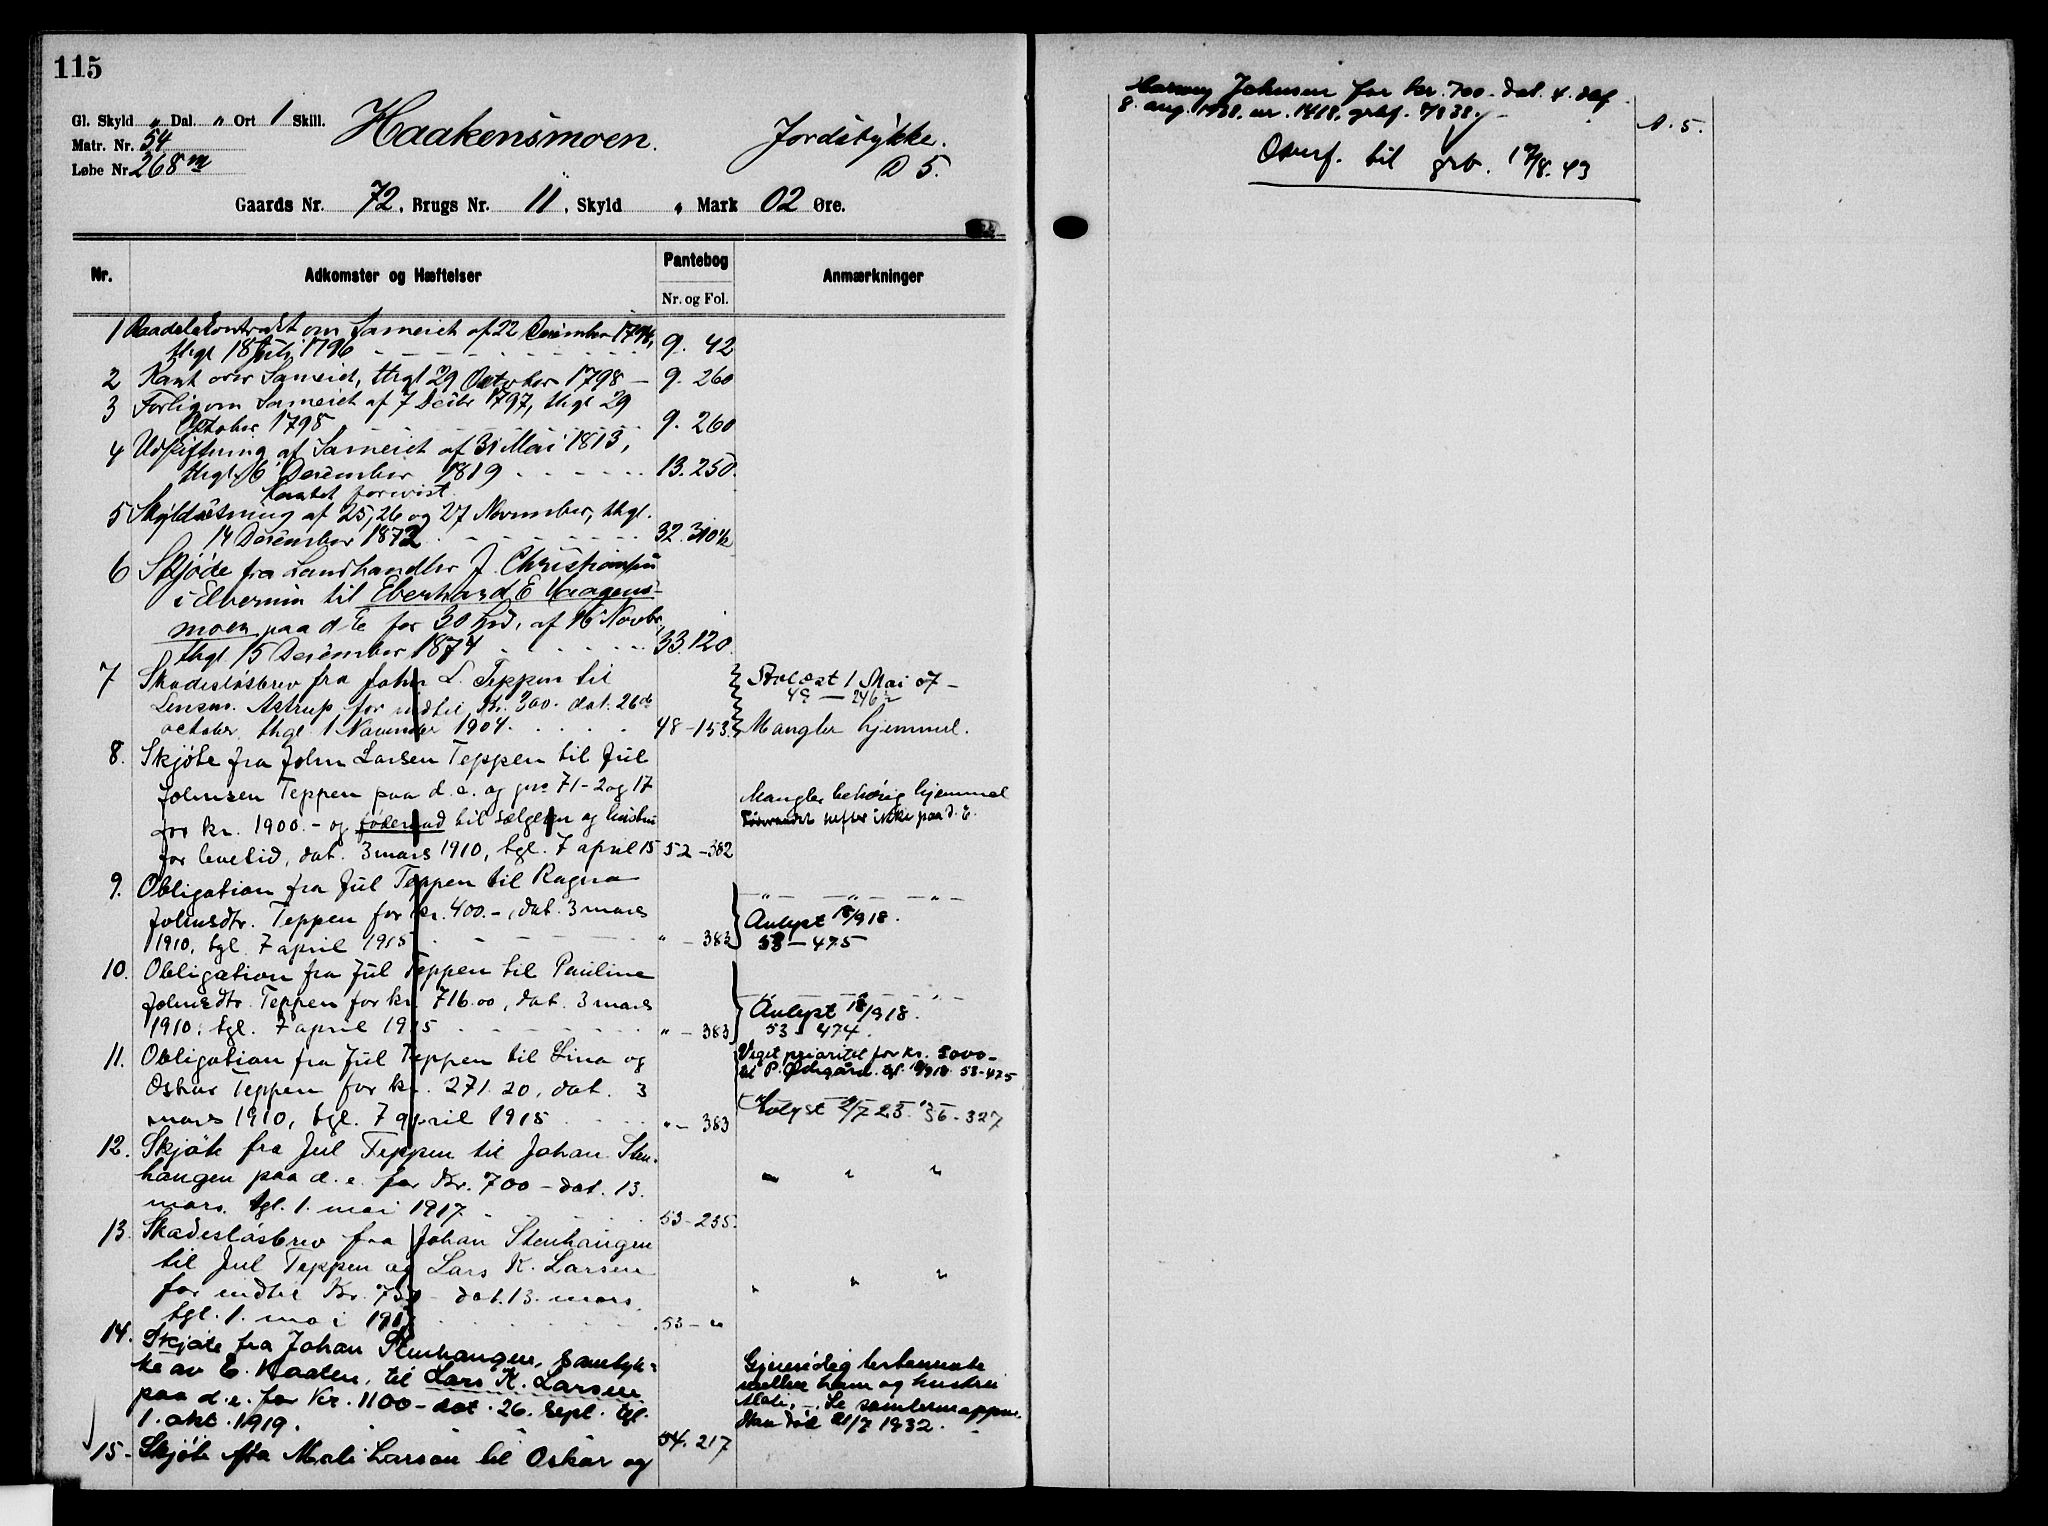 115
Gl. Skyld " Dal. " Ort 1 Skill.
Haakensmoen.
Jordstykke.
Matr. Nr. 54
Løbe Nr. 268 m
D 5.
Gaards Nr. 72, Brugs Nr. 11, Skyld " Mark 02 Øre.
Nr.
Adkomster og Hæftelser
Pantebog
Nr. og Fol.
Anmærkninger
1 Raadelskontrakt om Sameiet af 22 December
thgl 18 Juli 1796 9. 42
2 Kart over Sameiet, thgl 29 October 1798 — 9. 260
3 Forlig om Sameiet af 7 Decbr 1797, thgl 29
October 1798 9. 260
4 Udskiftning af Sameiet af 31 Mai 1813,
thgl. 6 December 1819 13. 250.
5 Skyldsætning af 25, 26 og 27 November, thgl.
14 December 1872 32. 310
6 Skjøde fra Landhandler J. Christiansen
i Elverum til Eberhard E Haagens-
moen paa d. E for 30 Spd, af 16 Novbr,
thgl. 15 December 1874 33. 120.
7 Skadesløsbrev fra John L. Teppen til
Lensm. Astrup for indtil Kr. 300. dat. 26de
october, thgl. 1 November 1904. 48 - 153.
Avlæst 1 Mai 07 -
49 — 246
Mangler hjemmel.
8. Skjøte fra John Larsen Teppen til Jul
Johnsen Teppen paa d. e. og gno 71 - 2 og 17
for kr. 1900.- og føderaad til sælgeren og hustru
for levetid, dat. 3 mars 1910, tgl. 7 april 15 52 - 382
Mangler behørig hjemmel
hefter ikke paa d. E.
9. Obligation fra Jul Teppen til Ragna
Johnsdtr. Teppen for kr. 400.-, dat. 3 mars
1910, tgl. 7 april 1915 " - 383
" " "
Avlyst 18/9 18.
53 - 475
10. Obligation fra Jul Teppen til Pauline
Johnsdtr. Teppen for kr. 716.00, dat. 3 mars
1910, tgl. 7 april 1915 " - 383
" " "
Avlyst 18/9 18.
53 - 474.
11. Obligation fra Jul Teppen til Lina og
Oskar Teppen for kr. 271.20, dat. 3
mars 1910, tgl. 7 april 1915 " - 383
Veget prioritet for kr. 5000-
til P. Ødegård. 53-475
Avlyst 2/7 23. 56 - 327
12. Skjøte fra Jul Teppen til Johan Sten-
haugen paa d. e. for Kr. 700 - dat. 13.
mars. tgl. 1. mai 1917 53 - 235.
" " "
13. Skadesløsbrev fra Johan Stenhaugen
til Jul Teppen og Lars K. Larsen
for indtil Kr. 750 - dat. 13. mars.
tgl. 1. mai 1917 53 - "
" " "
14. Skjøte fra Johan Stenhaugen, samtyk-
ke av E. Haalen, til Lars K. Larsen
paa d. e. for Kr. 1100 - dat. 26. sept. tgl.
1. okt. 1919. 54. 217
Gjensidig testamente
mellem ham og hustru
Mali, -. Se samlermappen.
Han død 21/7 1932.
15 - Skjøte fra Mali Larsen til Oskar og
Johnsen for kr. 700 - dat. 4. dbf.
8. aug. 1938. nr. 1418, grbf. 8/8 38. D. 5.
Overf. til grb. 17/8. 43